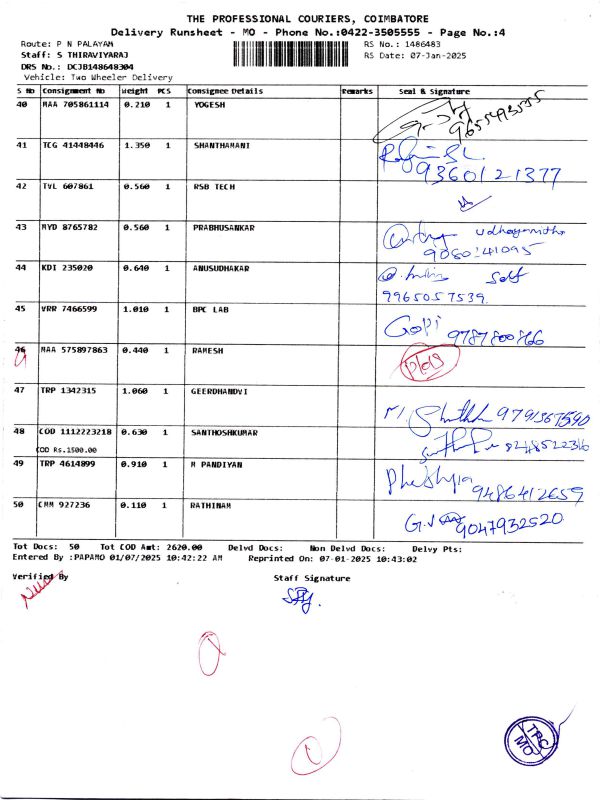 THE PROFESSIONAL COURIERS, COIMBATORE
Delivery Runsheet - MO - Phone No.:0422-3505555 - Page No.:4
Route: P N PALAYAM RS No.: 1486483
Staff: S THIRAVIYARAJ RS Date: 07-Jan-2025
DRS No.: DCJB148648304
Vehicle: Two Wheeler Delivery
S No Consignment No Weight PCS Consignee Details Remarks Seal & Signature
40 MAA 705861114 0.210 1 YOGESH
9655493575
41 TCG 41448446 1.350 1 SHANTHAMANI
9360121377
42 TVL 607861 0.560 1 RSB TECH
43 MYD 8765782 0.560 1 PRABHUSANKAR
44 KDI 235020 0.640 1 ANUSUDHAKAR Self
9965057539
45 VRR 7466599 1.010 1 BPC LAB
Gopi 9787800866
46 MAA 575897863 0.440 1 RAMESH
47 TRP 1342315 1.060 1 GEERDHANDVI
9791367590
48 COD 1112223218 0.630 1 SANTHOSHKUMAR
COD Rs.1500.00 8248522316
49 TRP 4614899 0.910 1 M PANDIYAN
9486412659
50 CMM 927236 0.110 1 RATHINAM
9047932520
Tot Docs: 50 Tot COD Amt: 2620.00 Delvd Docs: Non Delvd Docs: Delvy Pts:
Entered By :PAPAMO 01/07/2025 10:42:22 AM Reprinted On: 07-01-2025 10:43:02
Verified By Staff Signature
TPC
MO